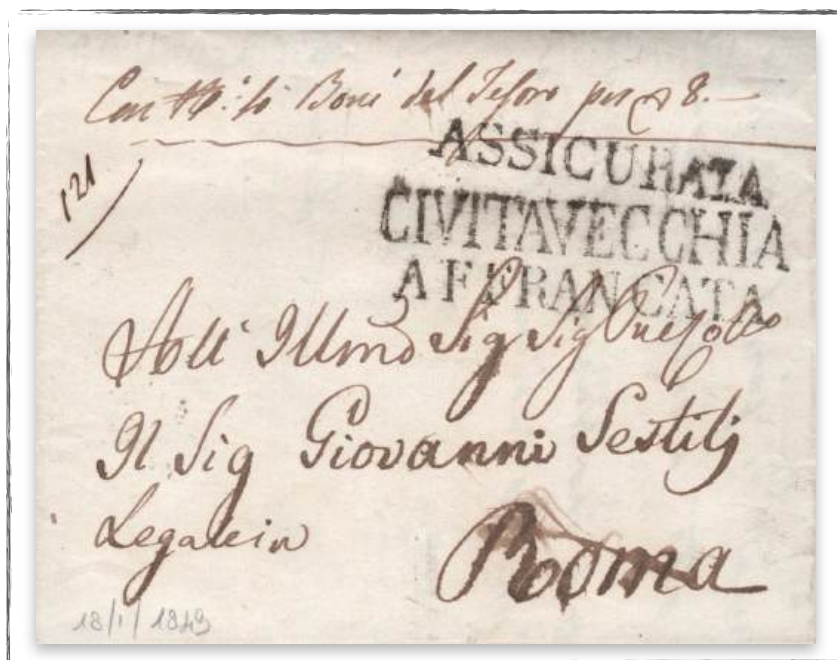 Boni del Tesoro per 8.
ASSICURATA
121
CIVITAVECCHIA
AFFRANCATA
All' Illmo Sig Sig
Il Sig Giovanni Sestilj
Legale in
Roma
18/1/1849